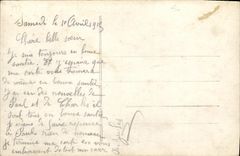 Samedi le 10 Avril 1915
Chère belle sœur
je suis toujours en bonne
santée. Et j'espère que
ma carte vous trouvera
de même en bonne santé
j'ai eu des nouvelles de
Paul et de Charles il
sont tous en bonne santée
je viens de faire réponse
à Charles rien de nouveau
je termine ma carte en vous
embrassant de tout mon cœur